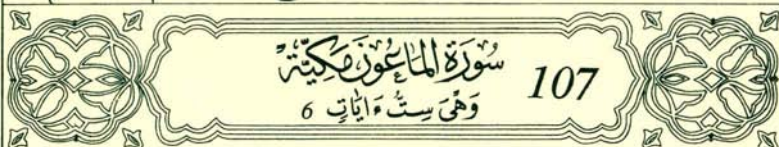 سُورَةُ الْمَاعُونَ مَكِّيَّةٌ 107
وَهْيَ سِتُّ ءَايَاتٍ 6